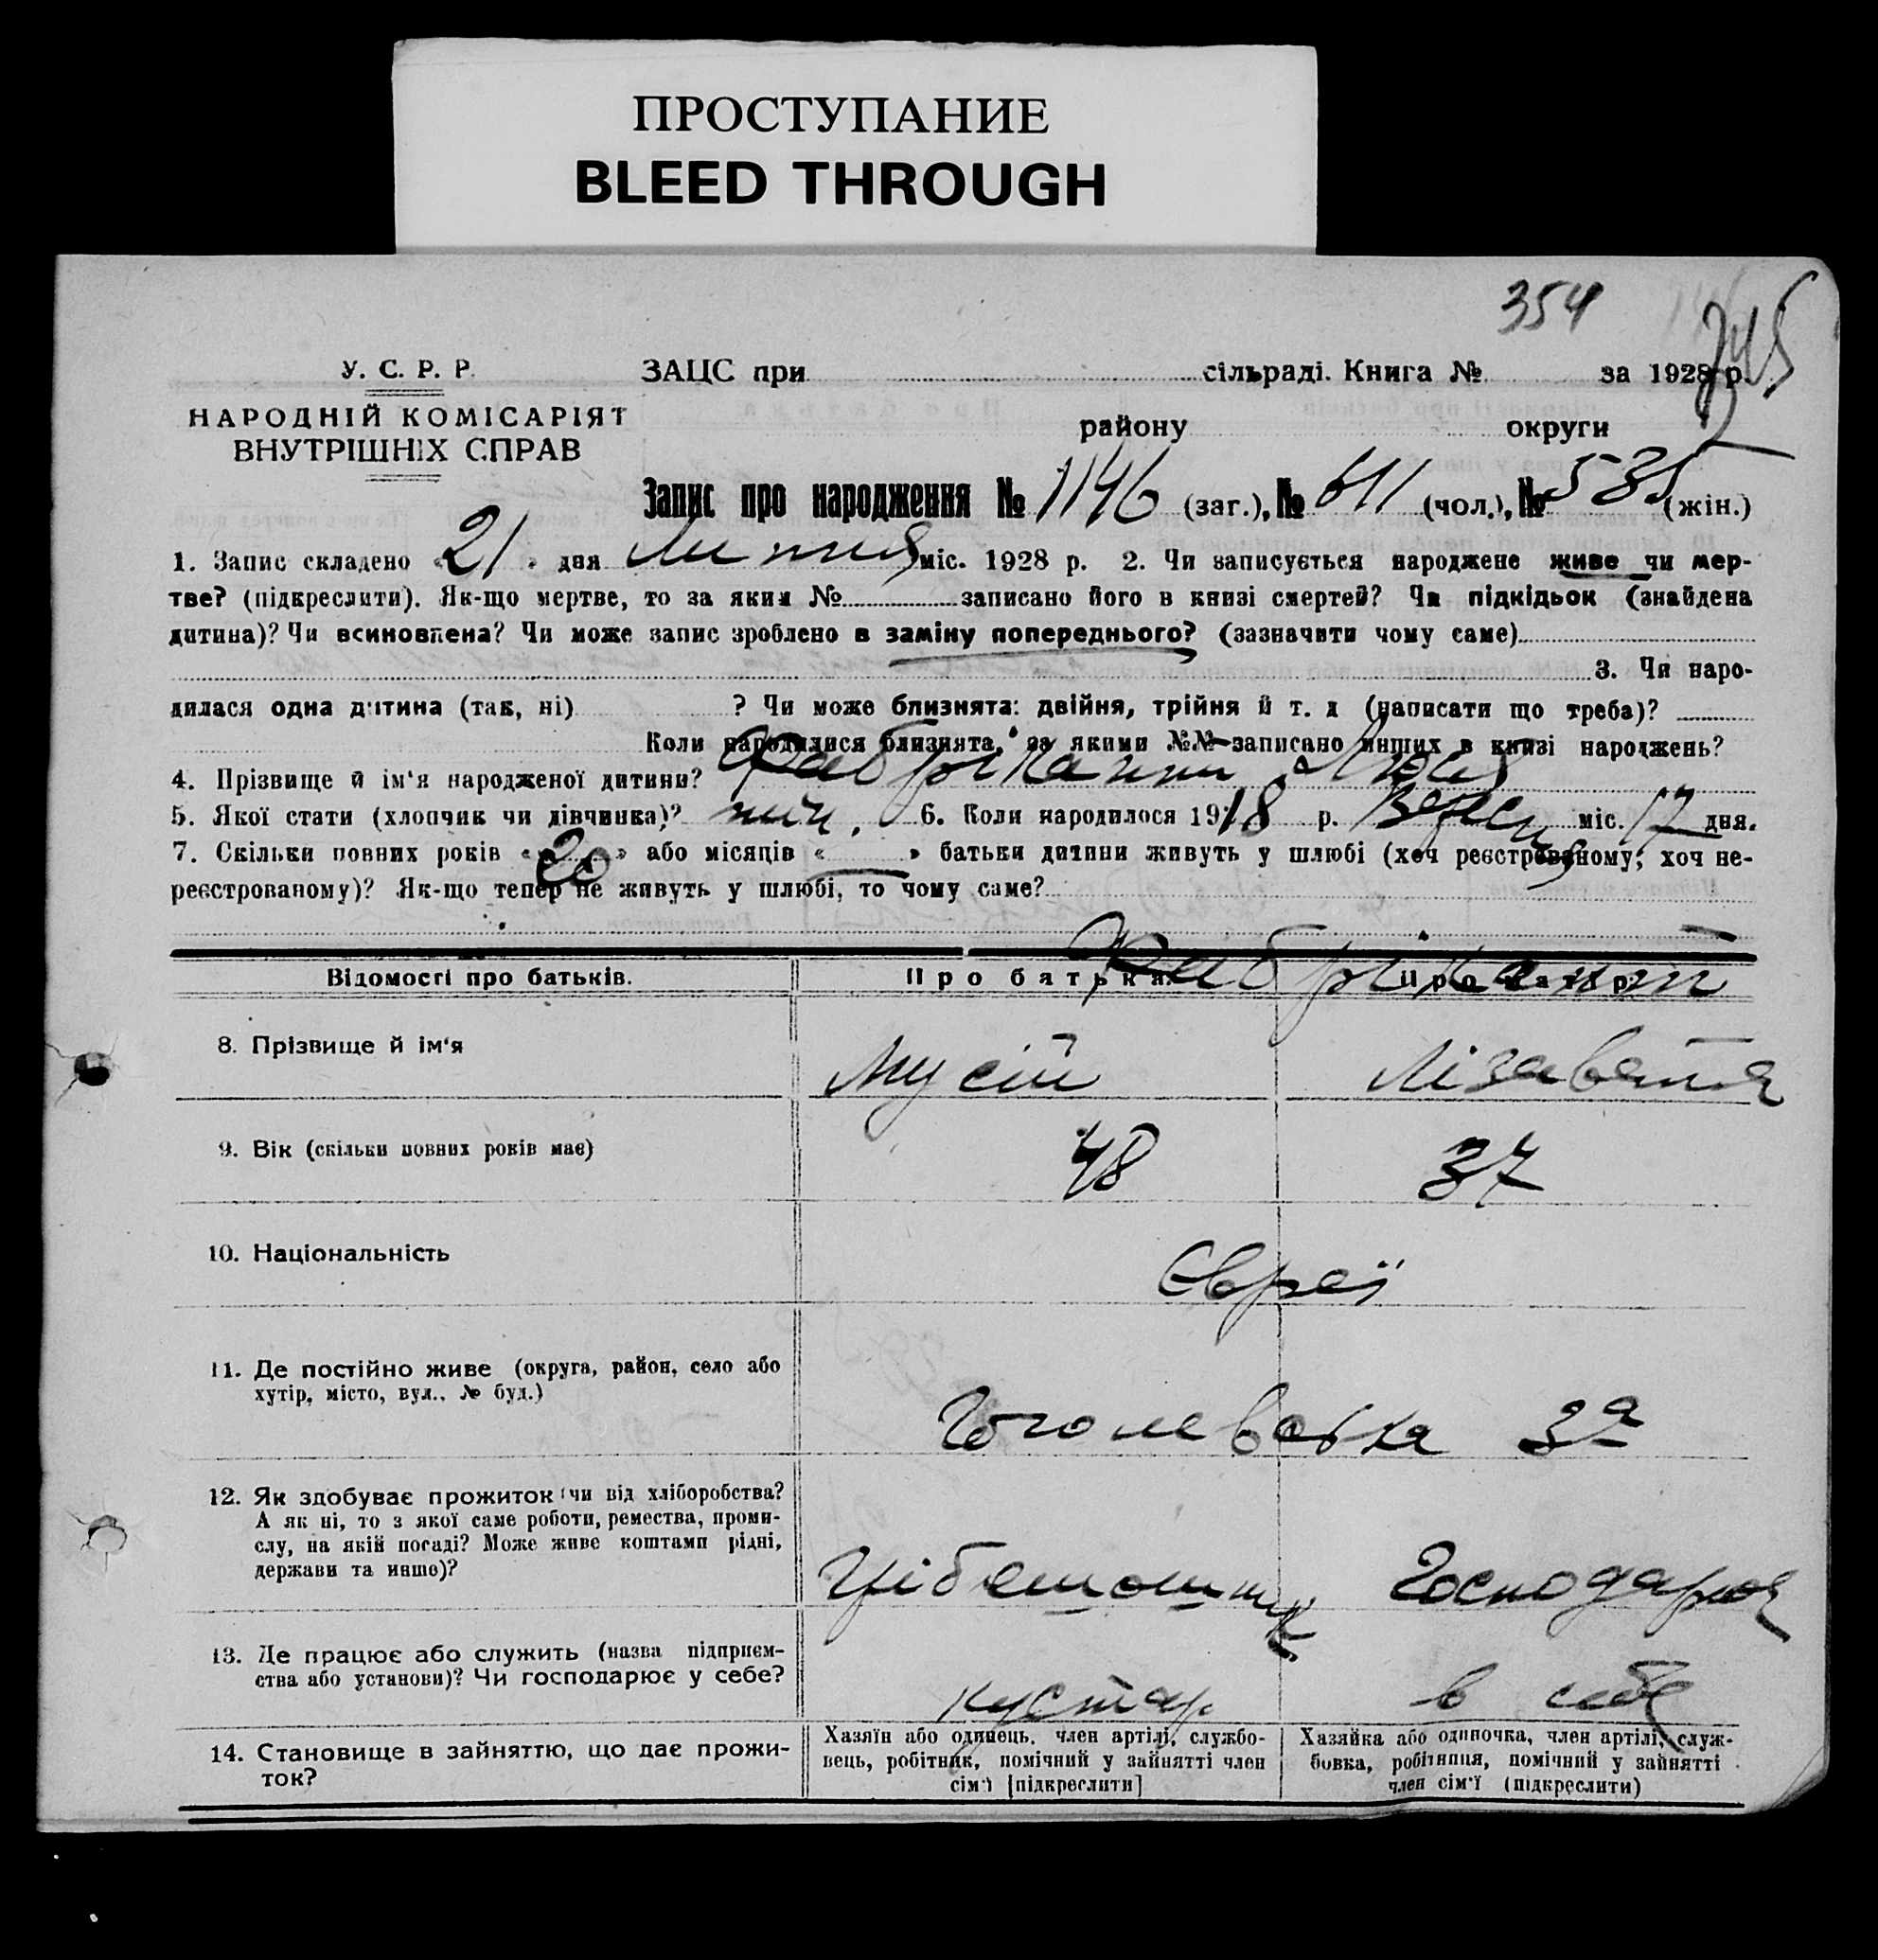 ПРОСТУПАНИЕ
BLEED THROUGH
354
У. С. Р. Р.
ЗАЦС при сільраді. Книга № за 1928 р.
НАРОДНІЙ КОМІСАРІЯТ
ВНУТРІШНІХ СПРАВ
району округи
Запис про народження № 1146 (заг.), № 611 (чол.), № 535 (жін.)
1. Запис складено «21» дня Липня міс. 1928 р. 2. Чи записується народжене живе чи мер-
тве? (підкреслити). Як-що мертве, то за яким № записано його в книзі смертей? Чи підкідьок (знайдена
дитина)? Чи всиновлена? Чи може запис зроблено в заміну попереднього? (зазначити чому саме)
3. Чи наро-
дилася одна дитина (так, ні) ? Чи може близнята: двійня, трійня й т. д (написати що треба)?
Коли народилися близнята, за якими №№ записано инших в книзі народжень?
4. Прізвище й ім'я народженої дитини? Фабрікант Люся
5. Якої стати (хлопчик чи дівчинка)? 6. Коли народилося 1918 р. Вересня міс. 17 дня.
7. Скільки повних років «20» або місяців « » батьки дитини живуть у шлюбі (хоч реєстрованому, хоч не-
реєстрованому)? Як-що тепер не живуть у шлюбі, то чому саме?
Фабрікант
Відомості про батьків. Про батька. Про матір.
8. Прізвище й ім'я Мусій Лізавета
9. Вік (скільки повних років має) 48 37
10. Національність Євреї
11. Де постійно живе (округа, район, село або
хутір, місто, вул., № буд.)
Гоголевська 3а
12. Як здобуває прожиток (чи від хліборобства?
А як ні, то з якої саме роботи, ремества, проми-
слу, на якій посаді? Може живе коштами рідні,
держави та инше)?
Господарює
13. Де працює або служить (назва підприєм-
ства або установи)? Чи господарює у себе?
кустар в себе
14. Становище в зайняттю, що дає прожи-
ток?
Хазяїн або одинець, член артілі, службо-
вець, робітник, помічний у зайнятті член
сім'ї [підкреслити]
Хазяйка або одиночка, член артілі, служ-
бовка, робітниця, помічний у зайнятті
член сім'ї (підкреслити)